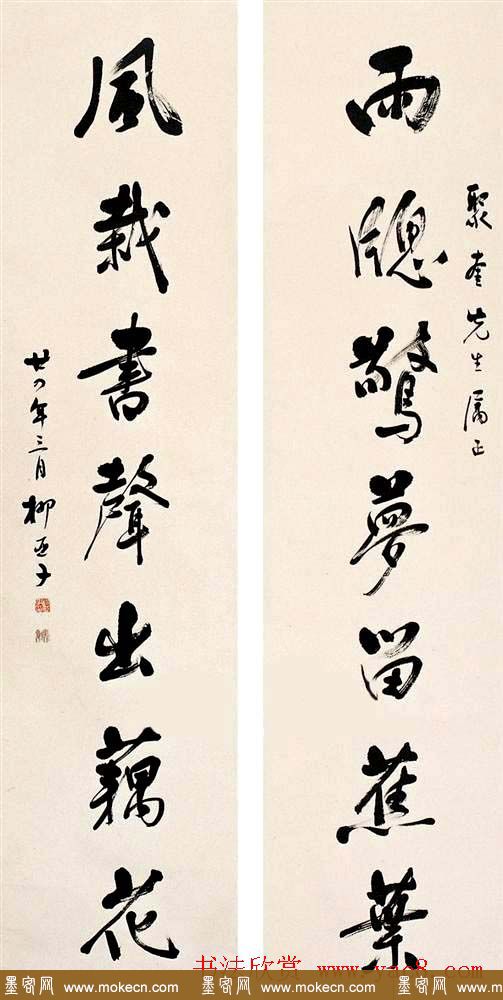 聚奎先生屬正
雨牕驚夢留蕉葉
風栽書聲出藕花
廿四年三月柳亞子
书法欣赏 www.yac8.com
墨客网 www.mokecn.com 墨客网 www.mokecn.com 墨客网 www.mokecn.com